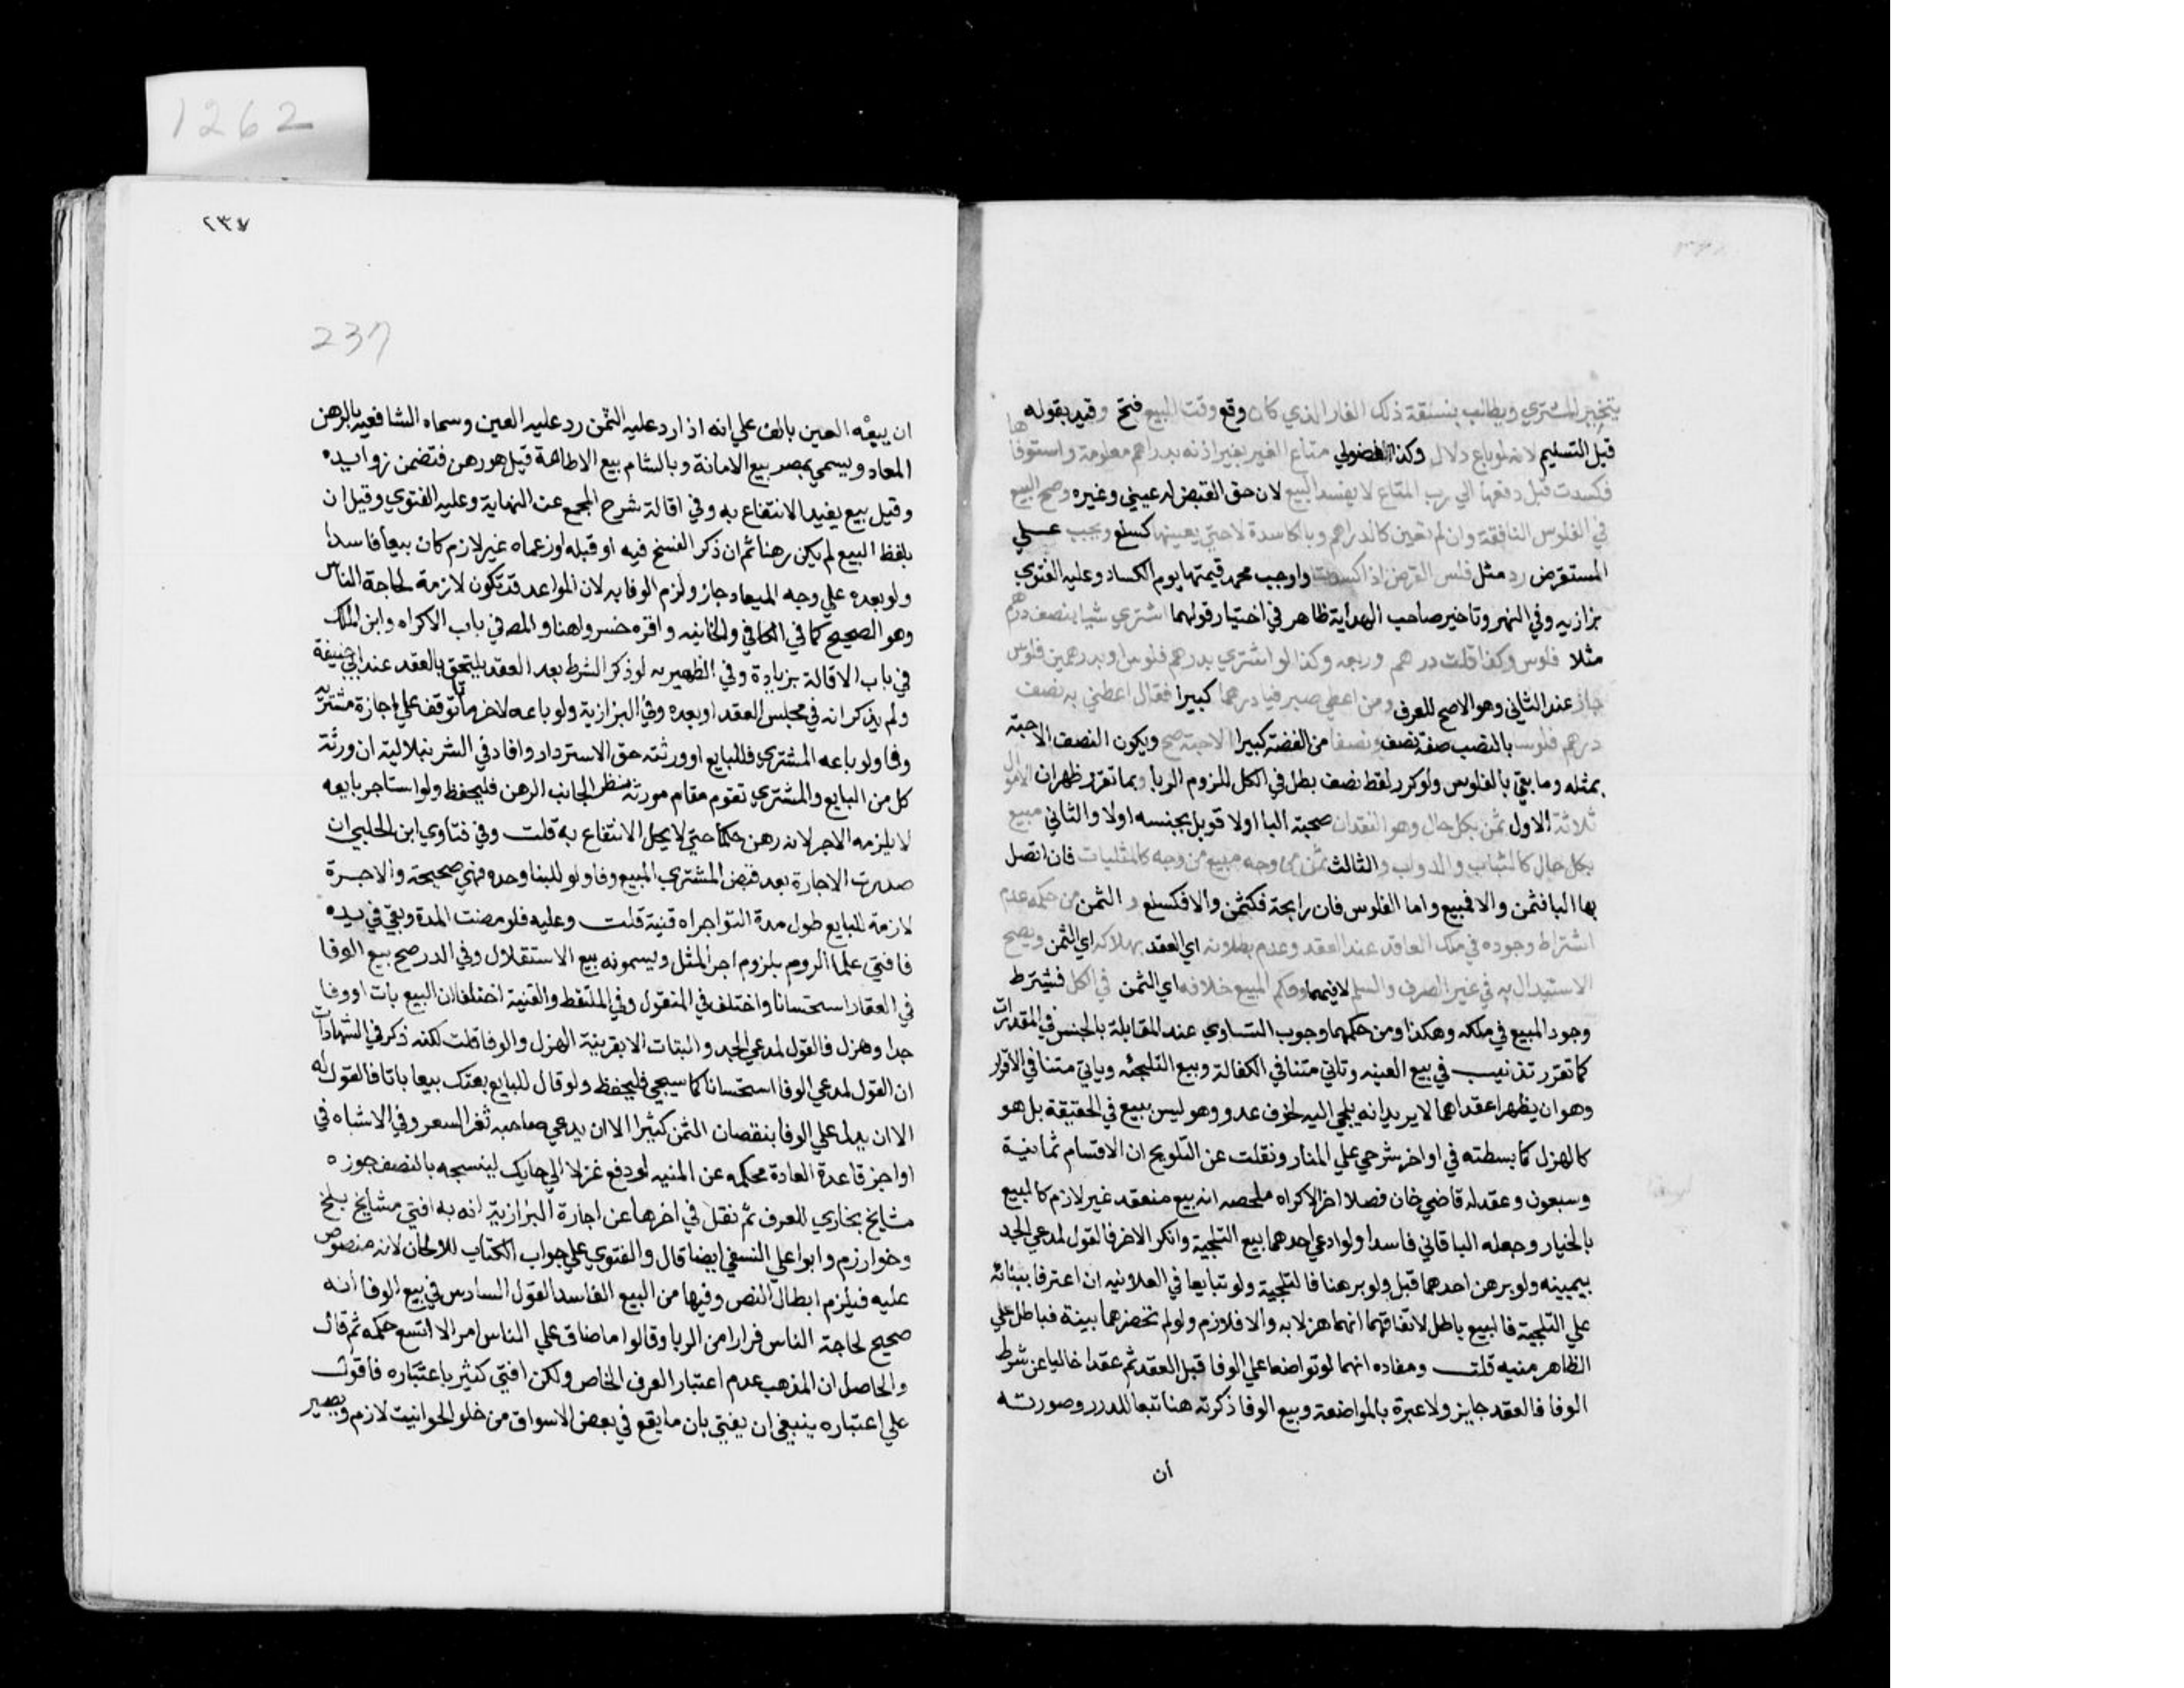 يتخير المشتري ويطالب بنسقة ذلك الغار الذي كان وقع وقت البيع فتح وقيد بقوله
قبل التسليم لانه لو باع دلال وكذا الفضولي متاع الغير بغير اذنه بدراهم معلومة واستوفاها
فكسدت قبل دفعها الي رب المتاع لا يفسد البيع لان حق القبض له عيني وغيره وصح البيع
في الفلوس النافقة وان لم تعين كالدراهم وبالكاسدة لا حتي يعينها كسلع ويجب علي
المستقرض رد مثل فلس القرض اذا كسدت واوجب محمد قيمتها يوم الكساد وعليه الفتوي
بزازيه وفي النهر وتاخير صاحب الهداية ظاهر في اختيار قولهما اشتري شيا بنصف درهم
مثلا فلوس وكذا قلت درهم وربعه وكذا لو اشتري بدرهم فلوس او بدرهمين فلوس
جاز عند الثاني وهو الاصح للعرف ومن اعطي صيرفيا درهما كبيرا فقال اعطني به نصف
درهم فلوسا بالنصب صفة نصف ونصفا من الفضة كبيرا الا حبة صح ويكون النصف الا حبة
بمثله وما بقي بالفلوس ولو كرر لفظ نصف بطل في الكل للزوم الربا وبما تقرر ظهر ان الاموال
ثلاثة الاول ثمن بكل حال وهو النقدان صحبته البا اولا قوبل بجنسه اولا والثاني مبيع
بكل حال كالثياب والدواب والثالث ثمن من وجه مبيع من وجه كالمثليات فان اتصل
بها البا فثمن والا فمبيع واما الفلوس فان رايجة فكثمن والا فكسلع والثمن من حكمه عدم
اشتراط وجوده في ملك العاقد عند العقد وعدم بطلانه اي العقد بهلاكه اي الثمن ويصح
الاستبدال به في غير الصرف والسلم لا فيهما وحكم المبيع خلافه اي الثمن في الكل فيشترط
وجود المبيع في ملكه وهكذا ومن حكمهما وجوب التساوي عند المقابلة بالجنس في المقدرات
كما تقرر تذنيب في بيع العينه وتاتي متنا في الكفالة وبيع التلجئه وياتي متنا في الاقرار
وهو ان يظهرا عقدا هما لا يريدانه يلجي اليه لخوف عدو وهو ليس ببيع في الحقيقة بل هو
كالهزل كما بسطته في اواخر شرحي علي المنار ونقلت عن التلويح ان الاقسام ثمانية
وسبعون وعقد له قاضي خان فصلا اخر الاكراه ملخصه انه بيع منعقد غير لازم كالبيع
بالخيار وجعله الباقاني فاسدا ولو ادعي احدهما بيع التلجية وانكر الاخر فالقول لمدعي الجد
بيمينه ولو برهن احدهما قبل ولو برهنا فالتلجية ولو تبايعا في العلانيه ان اعترفا ببنائه
علي التلجية فالبيع باطل لاتفاقهما انهما هزلا به والا فلازم ولو لم تحضرهما بينة فباطل علي
الظاهر منيه قلت ومفاده انهما لو تواضعا علي الوفا قبل العقد ثم عقدا خاليا عن شرط
الوفا فالعقد جايز ولا عبرة بالمواضعة وبيع الوفا ذكرته هنا تبعا للدرر وصورته
ان
1262
٢٣٧
237
ان يبيعه العين بالف علي انه اذا رد عليه الثمن رد عليه العين وسماه الشافعيه بالرهن
المعاد ويسمي بمصر بيع الامانة وبالشام بيع الاطاعة قيل هو رهن فتضمن زوايده
وقيل بيع يفيد الانتفاع به وفي اقالة شرح المجمع عن النهاية وعليه الفتوي وقيل ان
بلفظ البيع لم يكن رهنا ثم ان ذكر الفسخ فيه او قبله او زعماه غير لازم كان بيعا فاسدا
ولو بعده علي وجه الميعاد جاز ولزم الوفا به لان المواعد قد تكون لازمة لحاجة الناس
وهو الصحيح كما في الكافي والخانيه واقره خسرو هنا والمص في باب الاكراه وابن الملك
في باب الاقالة بزيادة وفي الظهيريه لو ذكر الشرط بعد العقد يلتحق بالعقد عند ابي حنيفة
ولم يذكر انه في مجلس العقد او بعده وفي البزازية ولو باعه لاخر باتا توقف علي اجازة مشتريه
وفا ولو باعه المشتري فللبايع او ورثته حق الاسترداد وافاد في الشرنبلالية ان ورثة
كل من البايع والمشتري تقوم مقام مورثه منظر الجانب الرهن فليحفظ ولو استاجر بايعه
لا يلزمه الاجر لانه رهن حكما حتي لا يحل الانتفاع به قلت وفي فتاوي ابن الحلبي ان
صدرت الاجارة بعد قبض المشتري المبيع وفا ولو للبنا وحده فهي صحيحة والاجرة
لازمة للبايع طول مدة التواجر اه قنية قلت وعليه فلو مضت المدة وبقي في يده
فافتي علما الروم بلزوم اجر المثل ويسمونه بيع الاستقلال وفي الدر صح بيع الوفا
في العقار استحسانا واختلف في المنقول وفي الملتقط والقنية اختلفا ان البيع بات او وفا
جدا وهزل فالقول لمدعي الجد والبتات الا بقرينة الهزل والوفا قلت لكنه ذكر في الشهادات
ان القول لمدعي الوفا استحسانا كما سيجي فليحفظ ولو قال للبايع بعتك بيعا باتا فالقول له
الا ان يدل علي الوفا بنقصان الثمن كثيرا الا ان يدعي صاحبه تغر السعر وفي الاشباه في
اواخر قاعدة العادة محكمه عن المنيه لو دفع غزلا الي حايك لينسجه بالنصف جوزه
مشايخ بخاري للعرف ثم نقل في اخرها عن اجارة البزازية انه به افتي مشايخ بلخ
وخوارزم وابو علي النسفي ايضا قال والفتوي علي جواب الكتاب للطحان لانه منصوص
عليه فيلزم ابطال النص وفيها من البيع الفاسد القول السادس في بيع الوفا انه
صحيح لحاجة الناس فرارا من الربا وقالوا ما ضاق علي الناس امر الا اتسع حكمه ثم قال
والحاصل ان المذهب عدم اعتبار العرف الخاص ولكن افتي كثير باعتباره فاقول
علي اعتباره ينبغي ان يفتي بان ما يقع في بعض الاسواق من خلو الحوانيت لازم ويصير